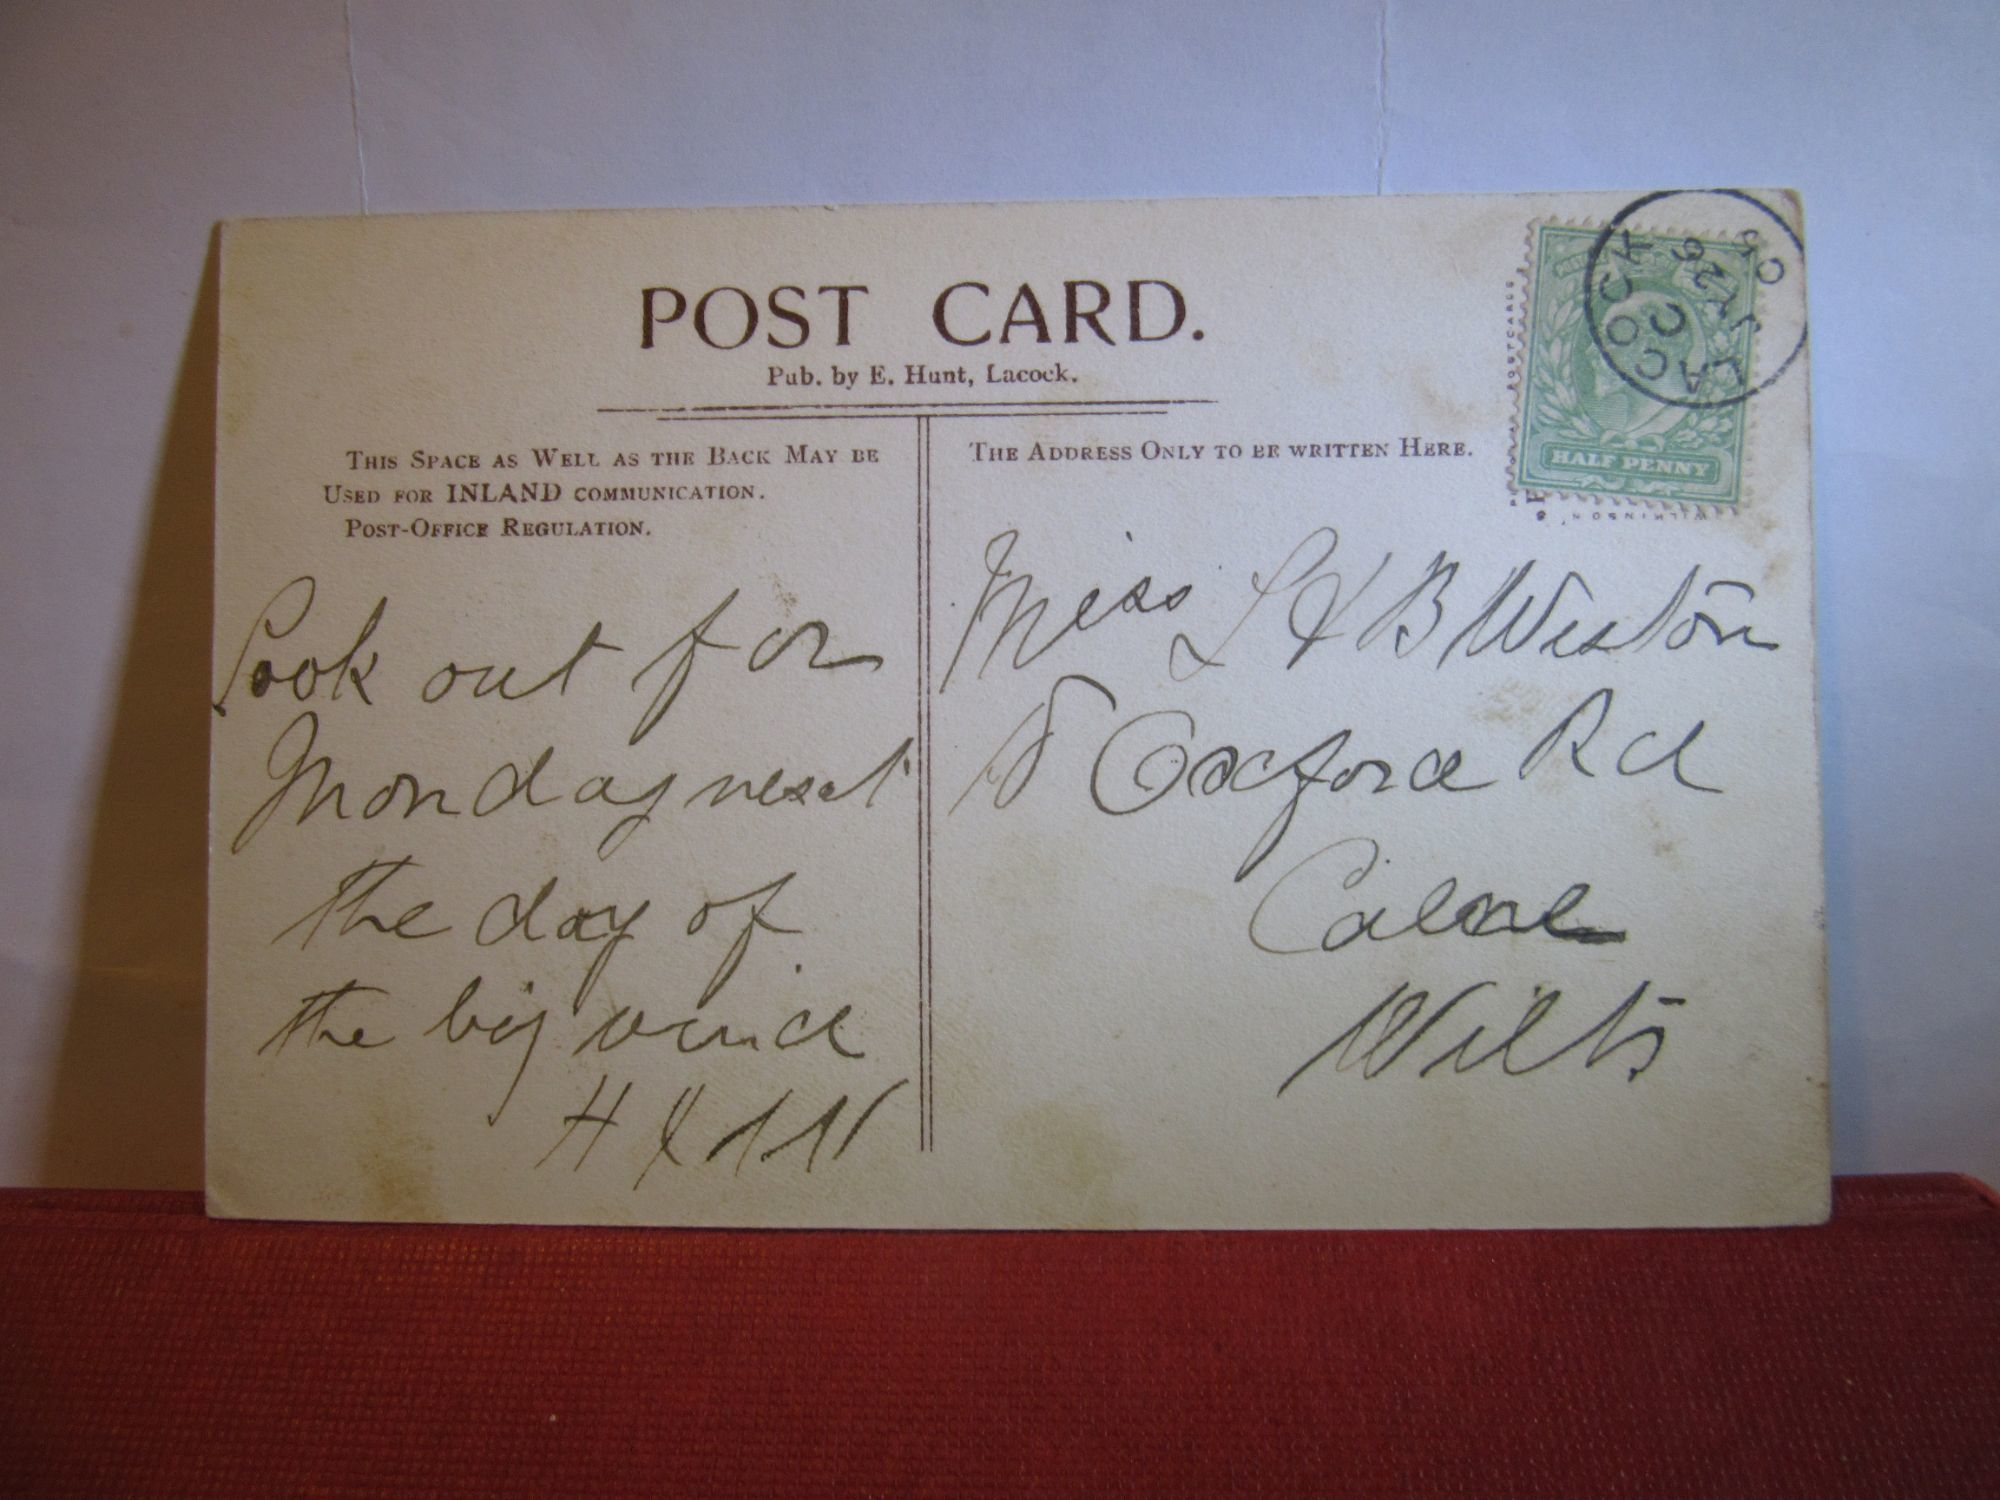 POST CARD.
Pub. by E. Hunt, Lacock.
THIS SPACE AS WELL AS THE BACK MAY BE
USED FOR INLAND COMMUNICATION.
POST-OFFICE REGULATION.
Look out for
Monday next
the day of
the big wind
H &
THE ADDRESS ONLY TO BE WRITTEN HERE.
Miss L & B Weston
Oxford Rd
Calne
Wilts
HALF PENNY
LACOCK
C
JY 26
05
POSTCARDS
WILKINSON